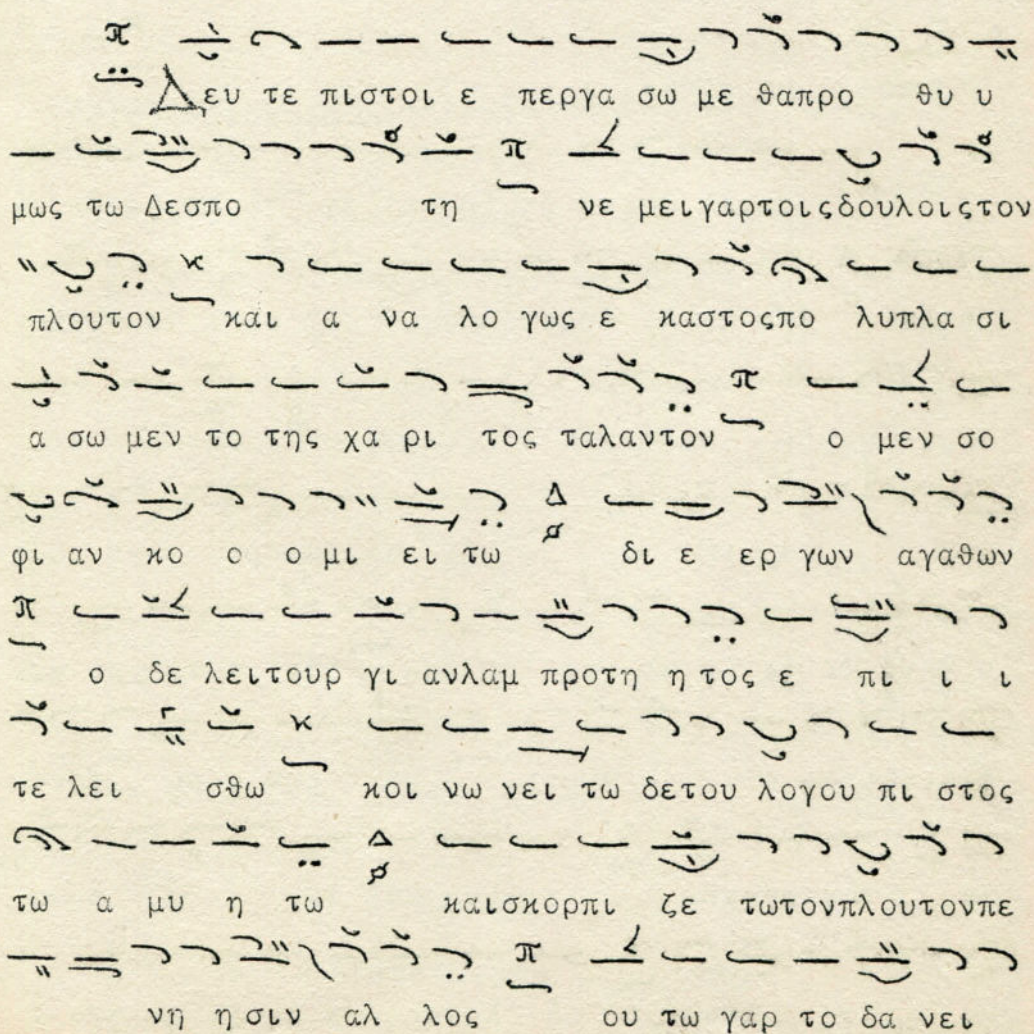 Δευ τε πιστοι ε περγα σω με θαπρο θυ υ
μως τω Δεσπο τη νε μειγαρτοιςδουλοιςτον
πλουτον και α να λο γως ε καστοςπο λυπλα σι
α σω μεν το της χα ρι τος ταλαντον ο μεν σο
φι αν κο ο ο μι ει τω δι ε ερ γων αγαθων
ο δε λειτουρ γι ανλαμ προτη η τος ε πι ι ι
τε λει σθω κοι νω νει τω δετου λογου πι στος
τω α μυ η τω καισκορπι ζε τωτονπλουτονπε
νη η σιν αλ λος ου τω γαρ το δα νει